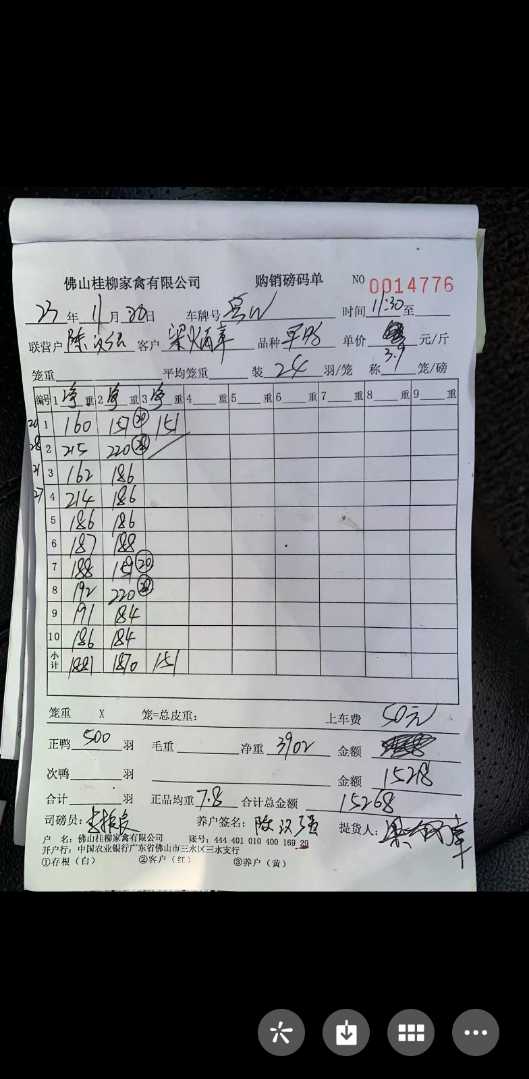 佛山桂柳家禽有限公司 购销磅码单 NO 0014776
23年11月30日 车牌号 时间11:30至
联营户 陈汉强 客户 品种 单价 3.9 元/斤
笼重 平均笼重 装 24 羽/笼 称 笼/磅
编号 1 净 重 2 净 重 3 净 重 4 重 5 重 6 重 7 重 8 重 9 重
20 1 160 157 20 151
28 2 215 220 28
21 3 162 186
27 4 214 186
5 186 186
6 187 188
7 188 159 20
8 192 220 28
9 191 184
10 186 184
小计 1881 1870 151
笼重 X 笼=总皮重: 上车费 50元
正鸭 500 羽 毛重 净重 3902 金额
次鸭 羽 金额 15218
合计 羽 正品均重 7.8 合计总金额 15268
司磅员: 养户签名: 陈汉强 提货人:
户 名: 佛山桂柳家禽有限公司 账号: 444 401 010 400 169 29
开户行: 中国农业银行广东省佛山市三水区三水支行
①存根(白) ②客户(红) ③养户(黄)